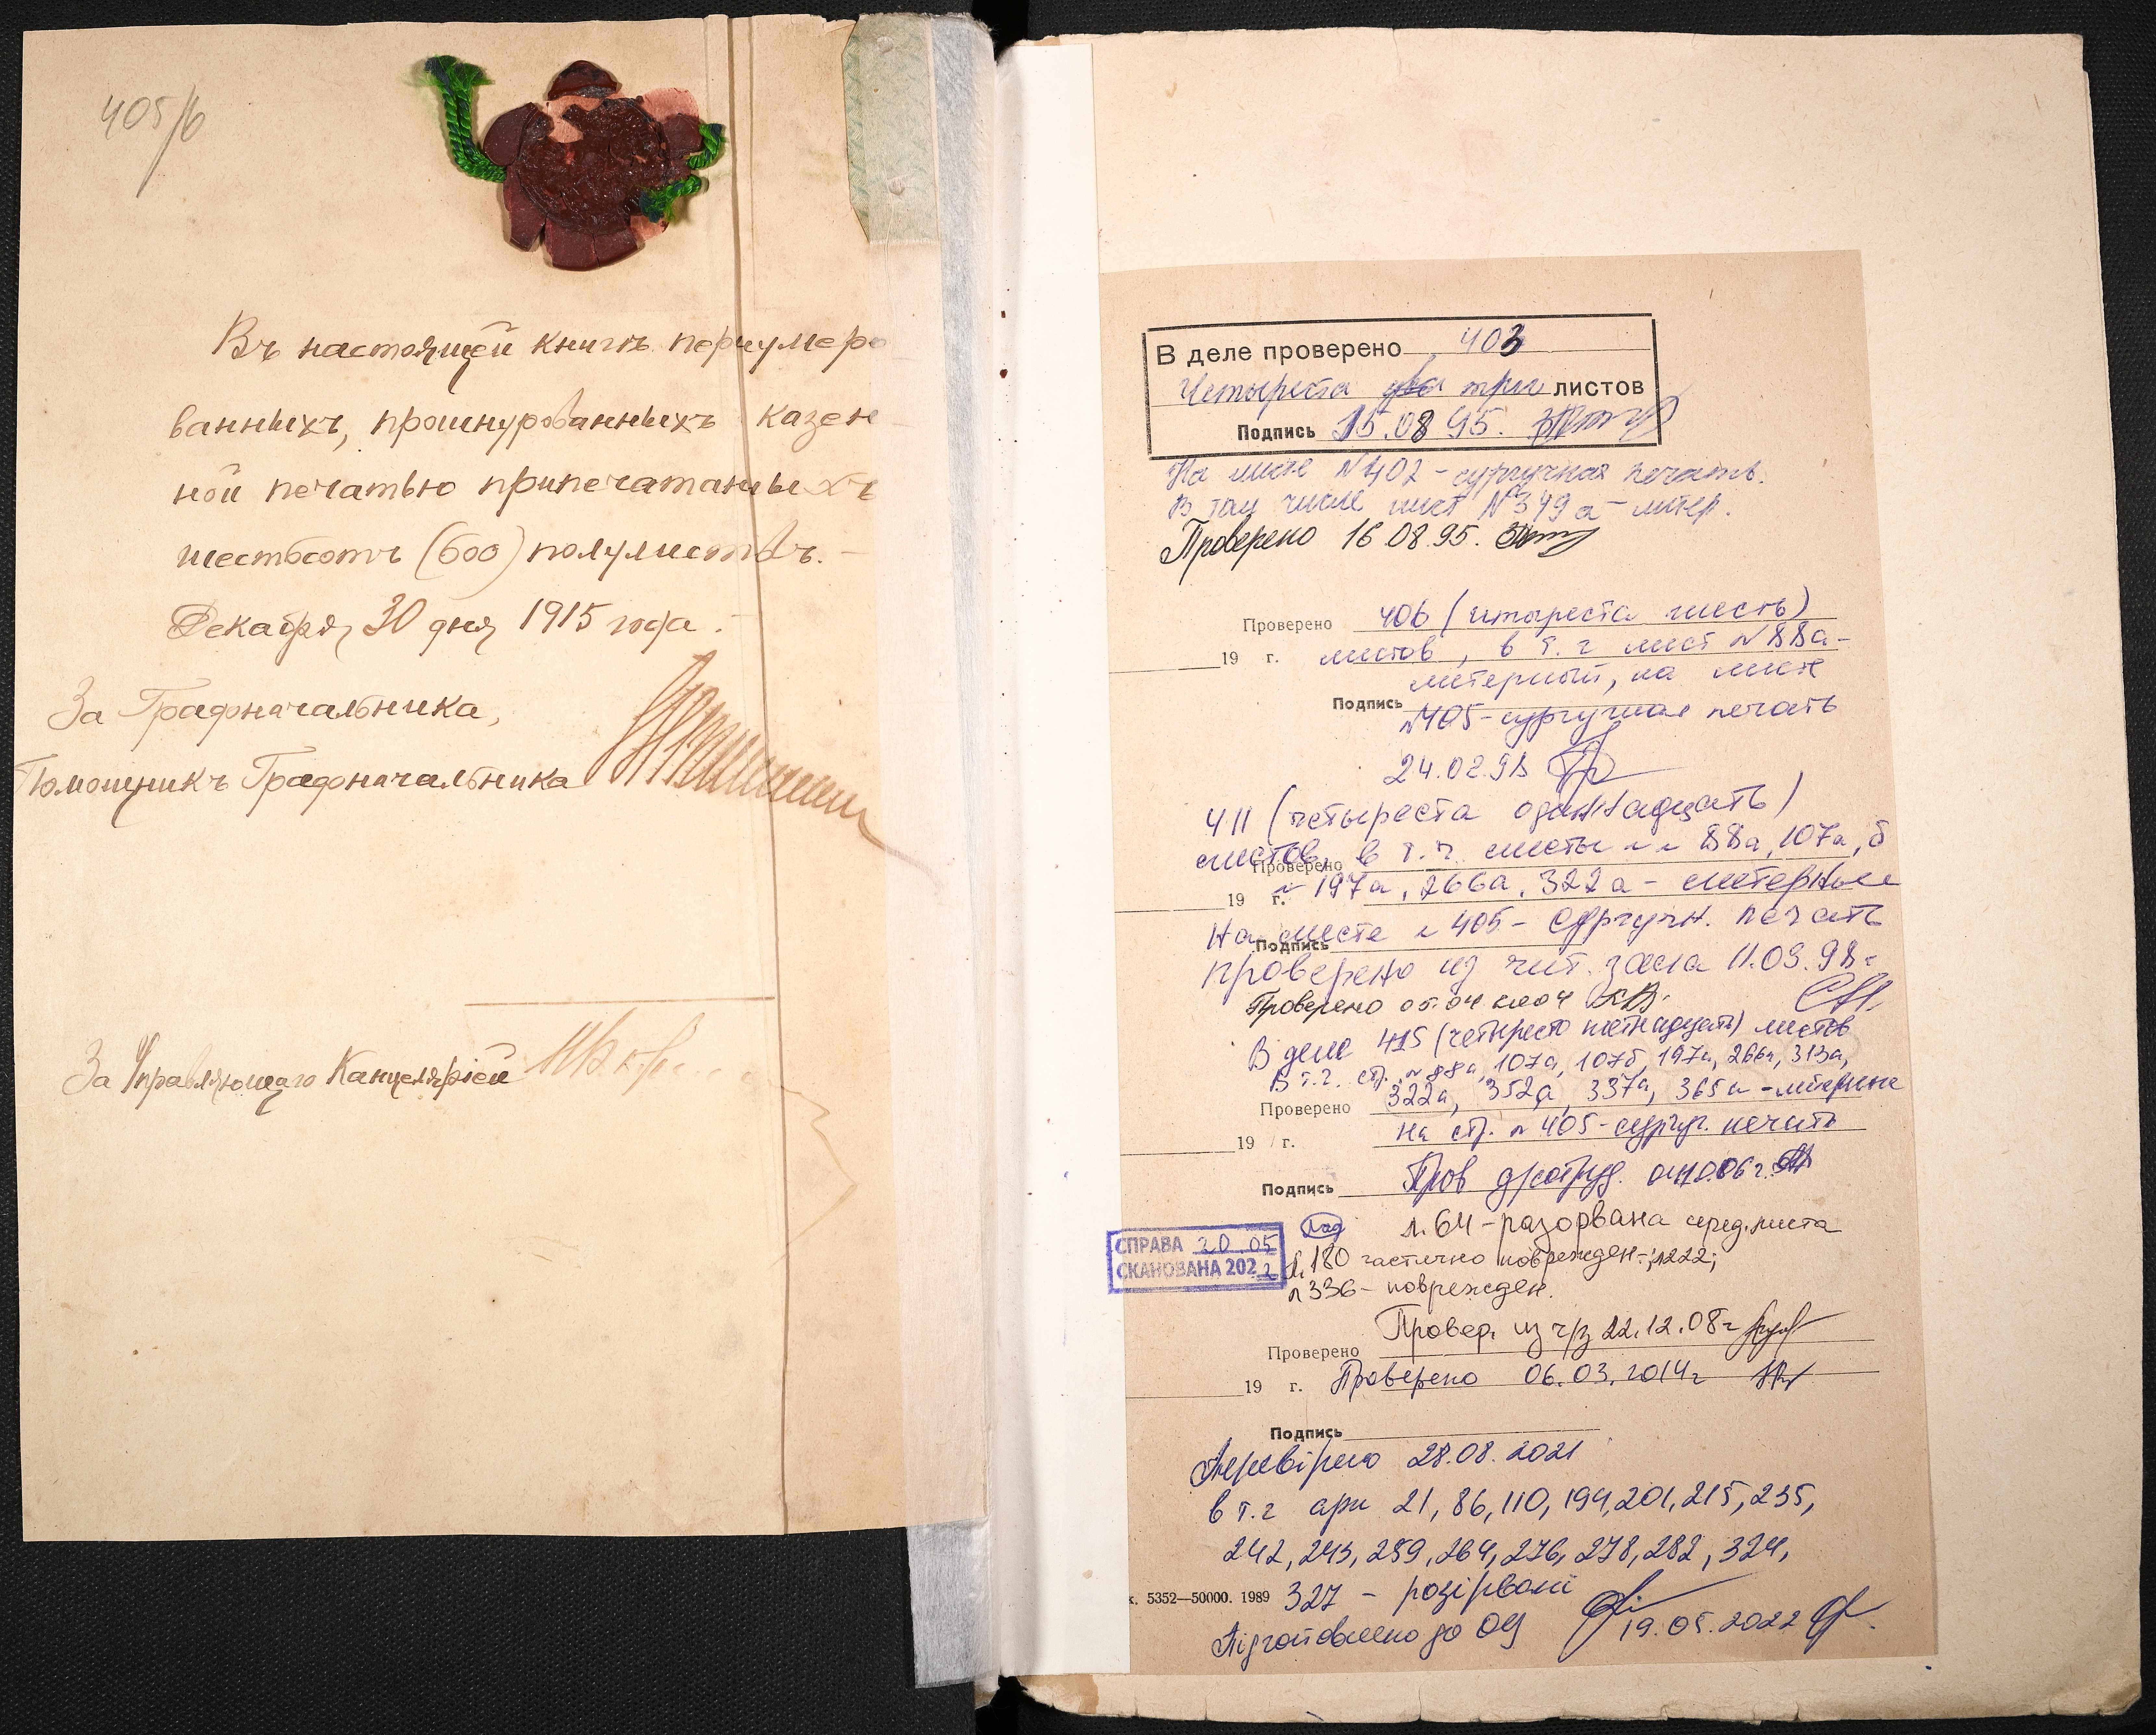 405/б
Въ настоящей книгѣ перnумеро
ванныхъ, прошнурованныхъ казен
ной печатью припечатанныхъ
шестьсотъ (600) полулистовъ.-
Декабря 30 дня 1915 года.
За Градоначальника,
Помощникъ Градоначальника
За Управляющаго Канцеляріей
В деле проверено 403
Четыреста два три листов
Подпись 15.08 95.
На листе №402 - сургучная печать.
В том числе лист №349а - литер.
Проверено 16.08.95.
Проверено 406 (четыреста шесть)
19 г. листов, в т. ч лист №88а-
литерный, на листе
Подпись
№405-сургучная печать
24.02.98
411 (четыреста одиннадцать)
листов, в т.ч. листы №№ 88а, 107а, б
Проверено
19 г. № 197а, 266а, 322а - литерные
На листе №405- сургучн. печать
Подпись
проверено из чит. зала 11.03.98г
Проверено 05.04
В деле 415 (четыреста пятнадцать) листов
В т.ч. стр. №88а, 107а, 107б, 197а, 266а, 313а,
Проверено 322а, 352а, 337а, 365а - литерные
19 г. На стр. №405-сургуч. печать
Подпись Пров
л. 64 - разорвана серед. листа
СПРАВА 20.05
СКАНОВАНА 2022
л. 180 частично поврежден-; л222;
л336- поврежден.
Провер. из ч/з 22.12.08г
Проверено
19 г. Проверено 06.03.2014г
Подпись
Перевірено 28.08.2021
в т.ч арк 21, 86, 110, 194, 201, 215, 235,
242, 243, 259, 264, 276, 278, 282, 324,
к. 5352—50000. 1989 327 - розірвані
Підготовлено до ОЦ 19.05.2022